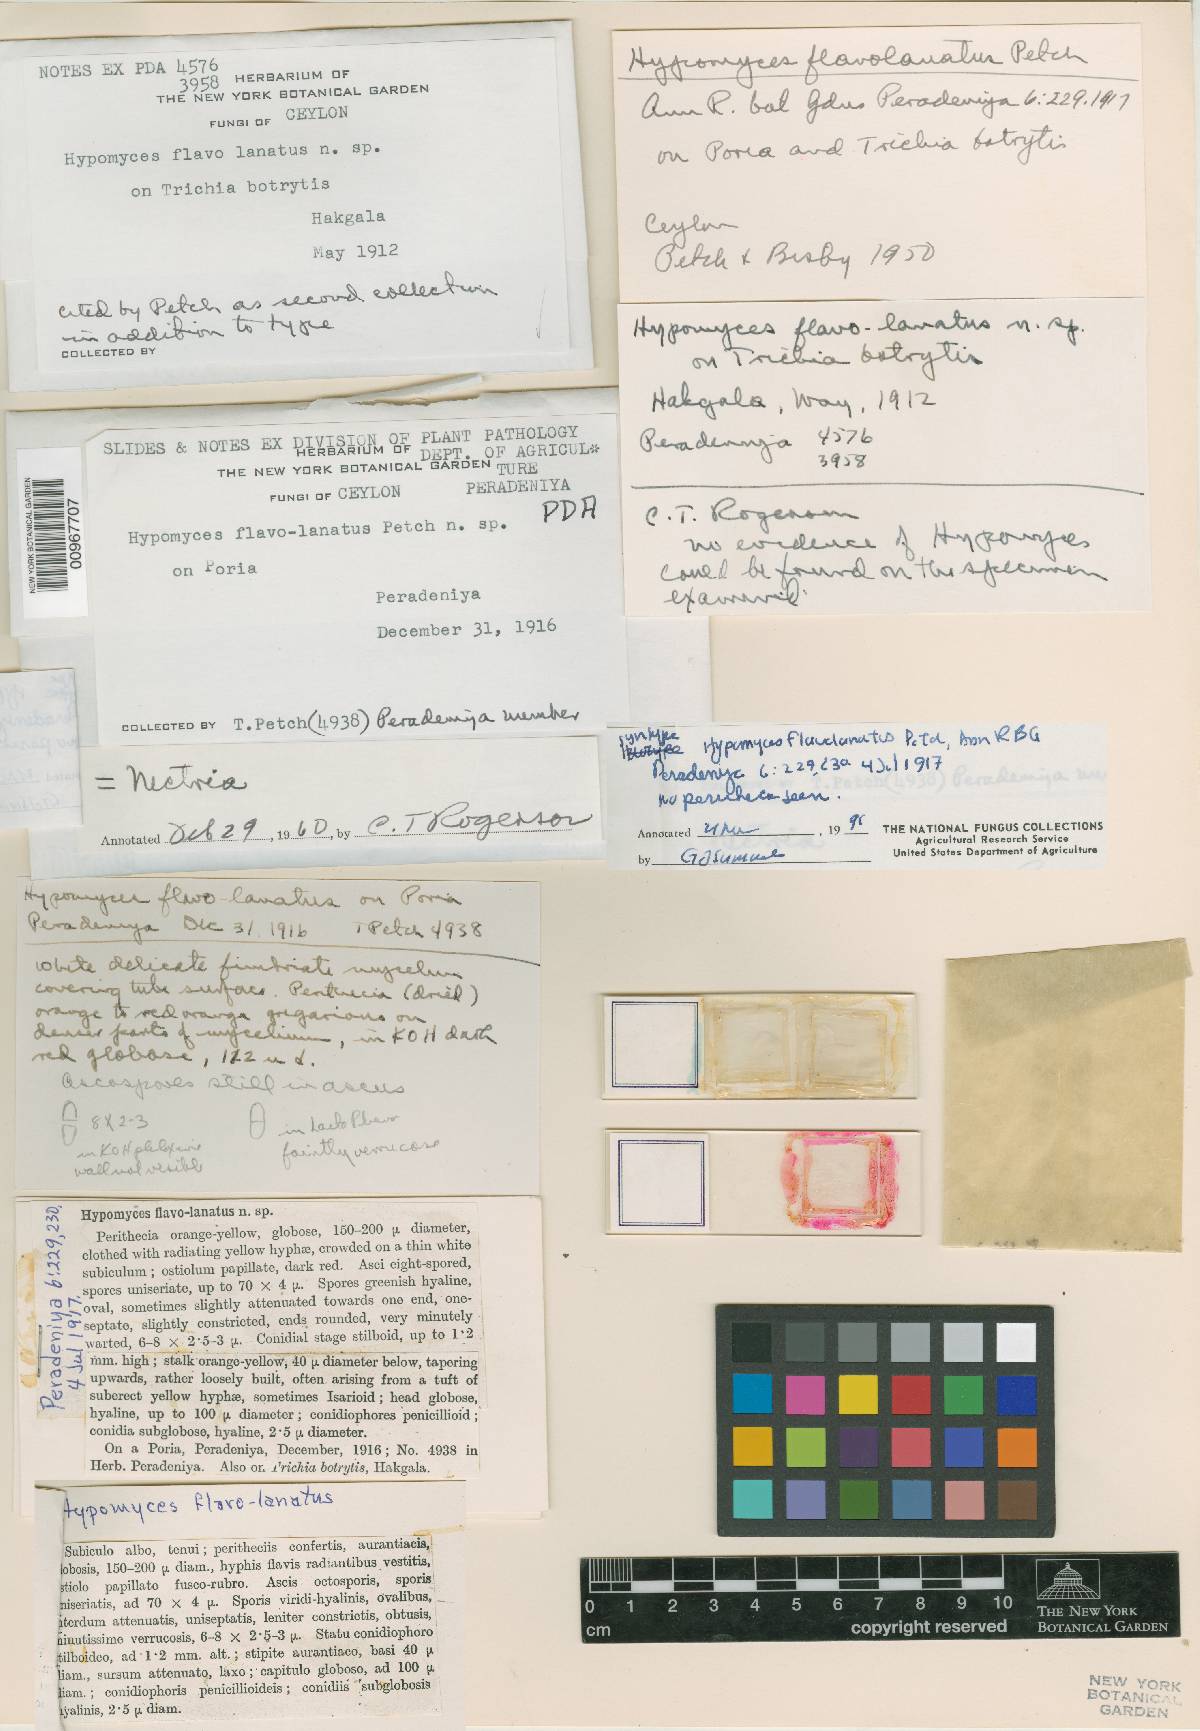 NOTES EX PDA 4576
3958 HERBARIUM OF
THE NEW YORK BOTANICAL GARDEN
FUNGI OF CEYLON
Hypomyces flavo lanatus n. sp.
on Trichia botrytis
Hakgala
May 1912
cited by Petch as second collection
in addition to type
COLLECTED BY
Hypomyces flavolanatus Petch
Ann R. bot Gdns Peradeniya 6:229.1917
on Poria and Trichia botrytis
Ceylon
Petch & Bisby 1950
Hypomyces flavo-lanatus n. sp.
on Trichia botrytis
Hakgala, May, 1912
Peradeniya 4576
3958
C.T. Rogerson
no evidence of Hypomyces
could be found on the specimen
examined.
NEW YORK BOTANICAL GARDEN
00967707
SLIDES & NOTES EX DIVISION OF PLANT PATHOLOGY
HERBARIUM OF DEPT. OF AGRICUL*
THE NEW YORK BOTANICAL GARDEN TURE
FUNGI OF CEYLON PERADENIYA
PDA
Hypomyces flavo-lanatus Petch n. sp.
on Poria
Peradeniya
December 31, 1916
COLLECTED BY T.Petch(4938) Peradeniya member
= Nectria
Annotated Feb 29, 1960, by C.T. Rogerson
syntype
Hypomyces flavolanatus Petch, Ann RBG
Peradeniya 6:229, 230 4 Jul 1917
no perithecia seen.
Annotated , 19
by GJSamuels
THE NATIONAL FUNGUS COLLECTIONS
Agricultural Research Service
United States Department of Agriculture
Hypomyces flavo-lanatus on Poria
Peradeniya Dec 31, 1916 T Petch 4938
White delicate fimbriate mycelium
covering tube surface. Perithecia (dried)
orange to red orange gregarious on
denser parts of mycelium, in KOH dark
red globose, 112 u d.
Ascospores still in ascus
8 X 2-3
in KOH phloxine
wall not visible
in Lacto Phenol
faintly verrucose
Peradeniya 6:229,230,
4 Jul 1917.
Hypomyces flavo-lanatus n. sp.
Perithecia orange-yellow, globose, 150–200 μ diameter,
clothed with radiating yellow hyphæ, crowded on a thin white
subiculum; ostiolum papillate, dark red. Asci eight-spored,
spores uniseriate, up to 70 × 4 μ. Spores greenish hyaline,
oval, sometimes slightly attenuated towards one end, one-
septate, slightly constricted, ends rounded, very minutely
warted, 6–8 × 2·5–3 μ. Conidial stage stilboid, up to 1·2
mm. high; stalk orange-yellow, 40 μ diameter below, tapering
upwards, rather loosely built, often arising from a tuft of
suberect yellow hyphæ, sometimes Isarioid; head globose,
hyaline, up to 100 μ diameter; conidiophores penicillioid;
conidia subglobose, hyaline, 2·5 μ diameter.
On a Poria, Peradeniya, December, 1916; No. 4938 in
Herb. Peradeniya. Also on Trichia botrytis, Hakgala.
Hypomyces flavo-lanatus
Subiculo albo, tenui; peritheciis confertis, aurantiacis,
lobosis, 150–200 μ diam., hyphis flavis radiantibus vestitis,
stiolo papillato fusco-rubro. Ascis octosporis, sporis
niseriatis, ad 70 × 4 μ. Sporis viridi-hyalinis, ovalibus,
nterdum attenuatis, uniseptatis, leniter constrictis, obtusis,
inutissime verrucosis, 6–8 × 2·5–3 μ. Statu conidiophoro
tilboideo, ad 1·2 mm. alt.; stipite aurantiaco, basi 40 μ
diam., sursum attenuato, laxo; capitulo globoso, ad 100 μ
diam.; conidiophoris penicillioideis; conidiis subglobosis
hyalinis, 2·5 μ diam.
0 1 2 3 4 5 6 7 8 9 10
cm copyright reserved
THE NEW YORK
BOTANICAL GARDEN
NEW YORK
BOTANICAL
GARDEN